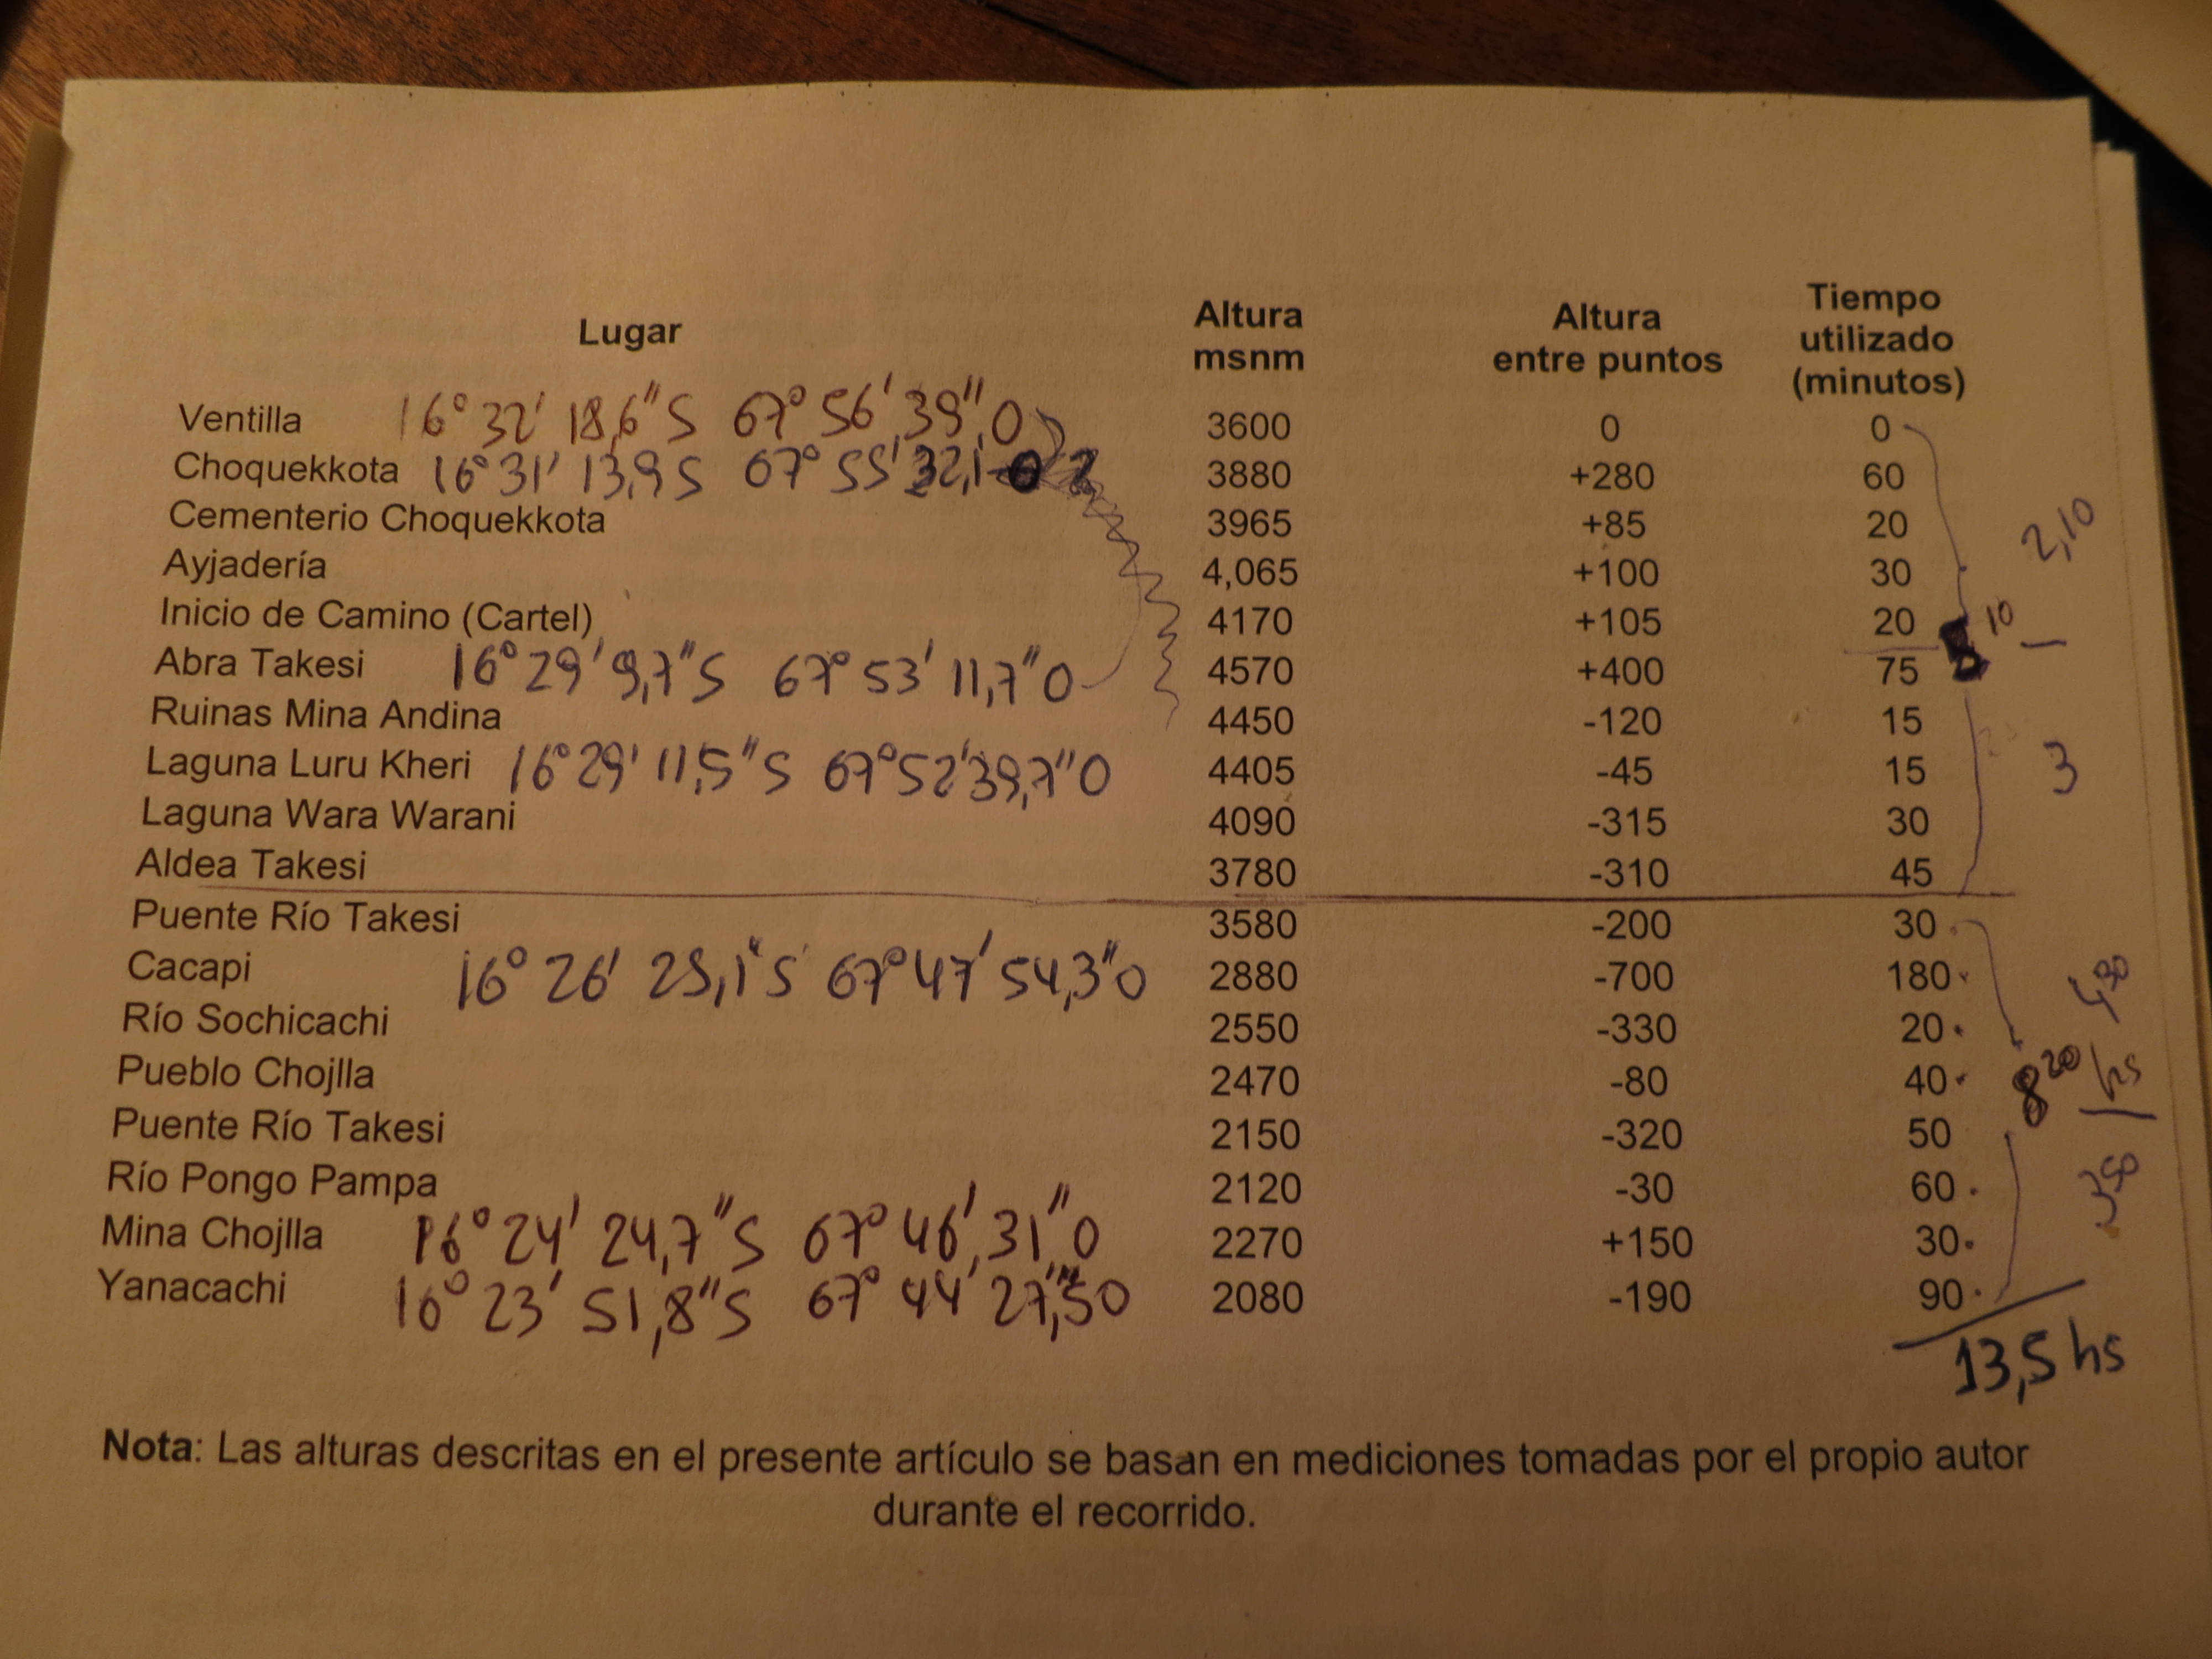 Lugar Altura msnm Altura entre puntos Tiempo utilizado (minutos)
Ventilla 16° 32' 18,6" S 67° 56' 39" O 3600 0 0
Choquekkota 16° 31' 13,9 S 67° 55' 32,1 3880 +280 60
Cementerio Choquekkota 3965 +85 20
2,10
Ayjadería 4,065 +100 30
Inicio de Camino (Cartel) 4170 +105 20
10
Abra Takesi 16° 29' 9,7" S 67° 53' 11,7" O 4570 +400 75
Ruinas Mina Andina 4450 -120 15
Laguna Luru Kheri 16° 29' 11,5" S 67° 52' 39,7" O 4405 -45 15
3
Laguna Wara Warani 4090 -315 30
Aldea Takesi 3780 -310 45
Puente Río Takesi 3580 -200 30
Cacapi 16° 26' 25,1" S 67° 47' 54,3" O 2880 -700 180
4 30
Río Sochicachi 2550 -330 20
Pueblo Chojlla 2470 -80 40
8 20 hs
Puente Río Takesi 2150 -320 50
Río Pongo Pampa 2120 -30 60
3 50
Mina Chojlla 16° 24' 24,7" S 67° 46' 31" O 2270 +150 30
Yanacachi 16° 23' 51,8" S 67° 44' 27,5" O 2080 -190 90
13,5 hs
Nota: Las alturas descritas en el presente artículo se basan en mediciones tomadas por el propio autor
durante el recorrido.